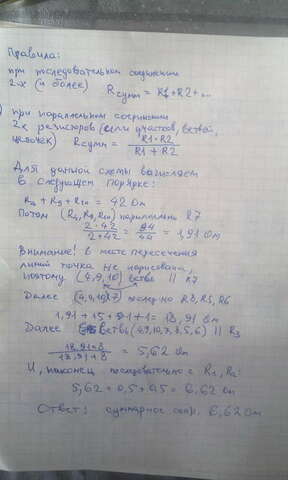 Правила:
при последовательном соединении
2-х (и более) Rсумм = R1+R2+...
при параллельном соединении
2х резисторов (или участков, ветвей,
цепочек) Rсумм = R1·R2 / R1+R2
Для данной схемы вычисляем
в следующем порядке:
R4 + R9 + R10 = 42 Ом
Потом (R4,R9,R10) параллельно R7
2·42 / 2+42 = 84 / 44 = 1,91 Ом
Внимание! в месте пересечения
линий точка не нарисована,
поэтому (4,9,10) ветвь || R7
Далее (4,9,10,7) послед-но R8,R5,R6
1,91 + 15 + + 1 = 18,91 Ом
Далее ветвь (4,9,10,7,8,5,6) || R3
18,91·8 / 18,91+8 = 5,62 Ом
И, наконец последовательно с R1,R2:
5,62 + 0,5 + 0,5 = 6,62 Ом
Ответ: сопр. 6,62 Ом